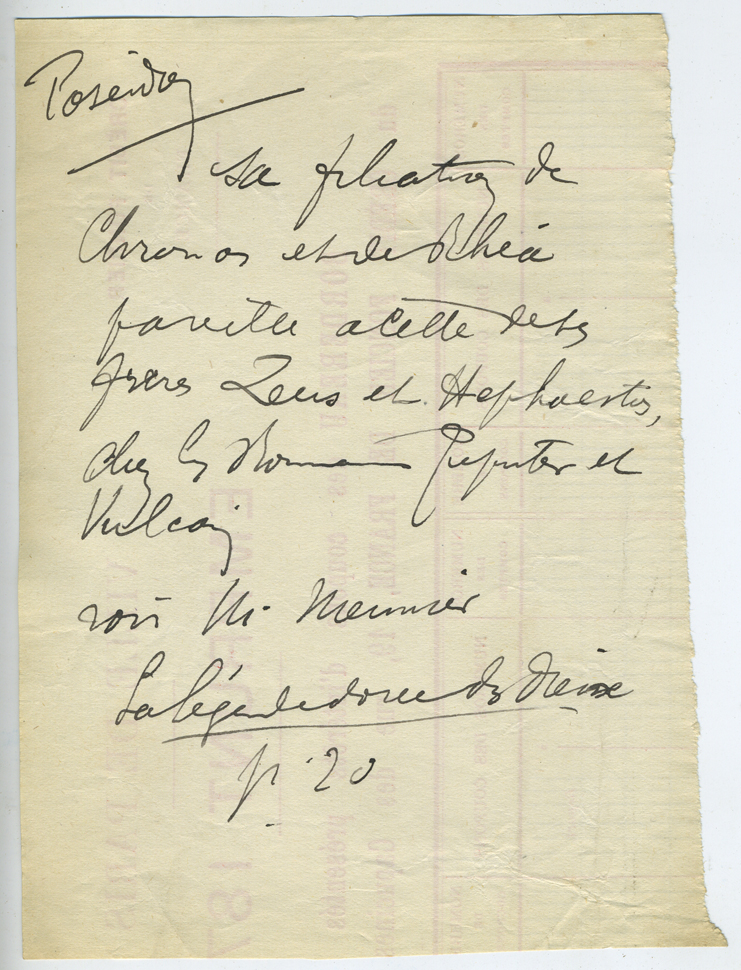 Poseidon
sa filiation de
Chronos et de Rhéa
pareille a celle de ses
freres Zeus et Hephaestos,
chez les Romains Jupiter et
Vulcain
voir M. Meunier
La légende doree des Dieux
p. 20